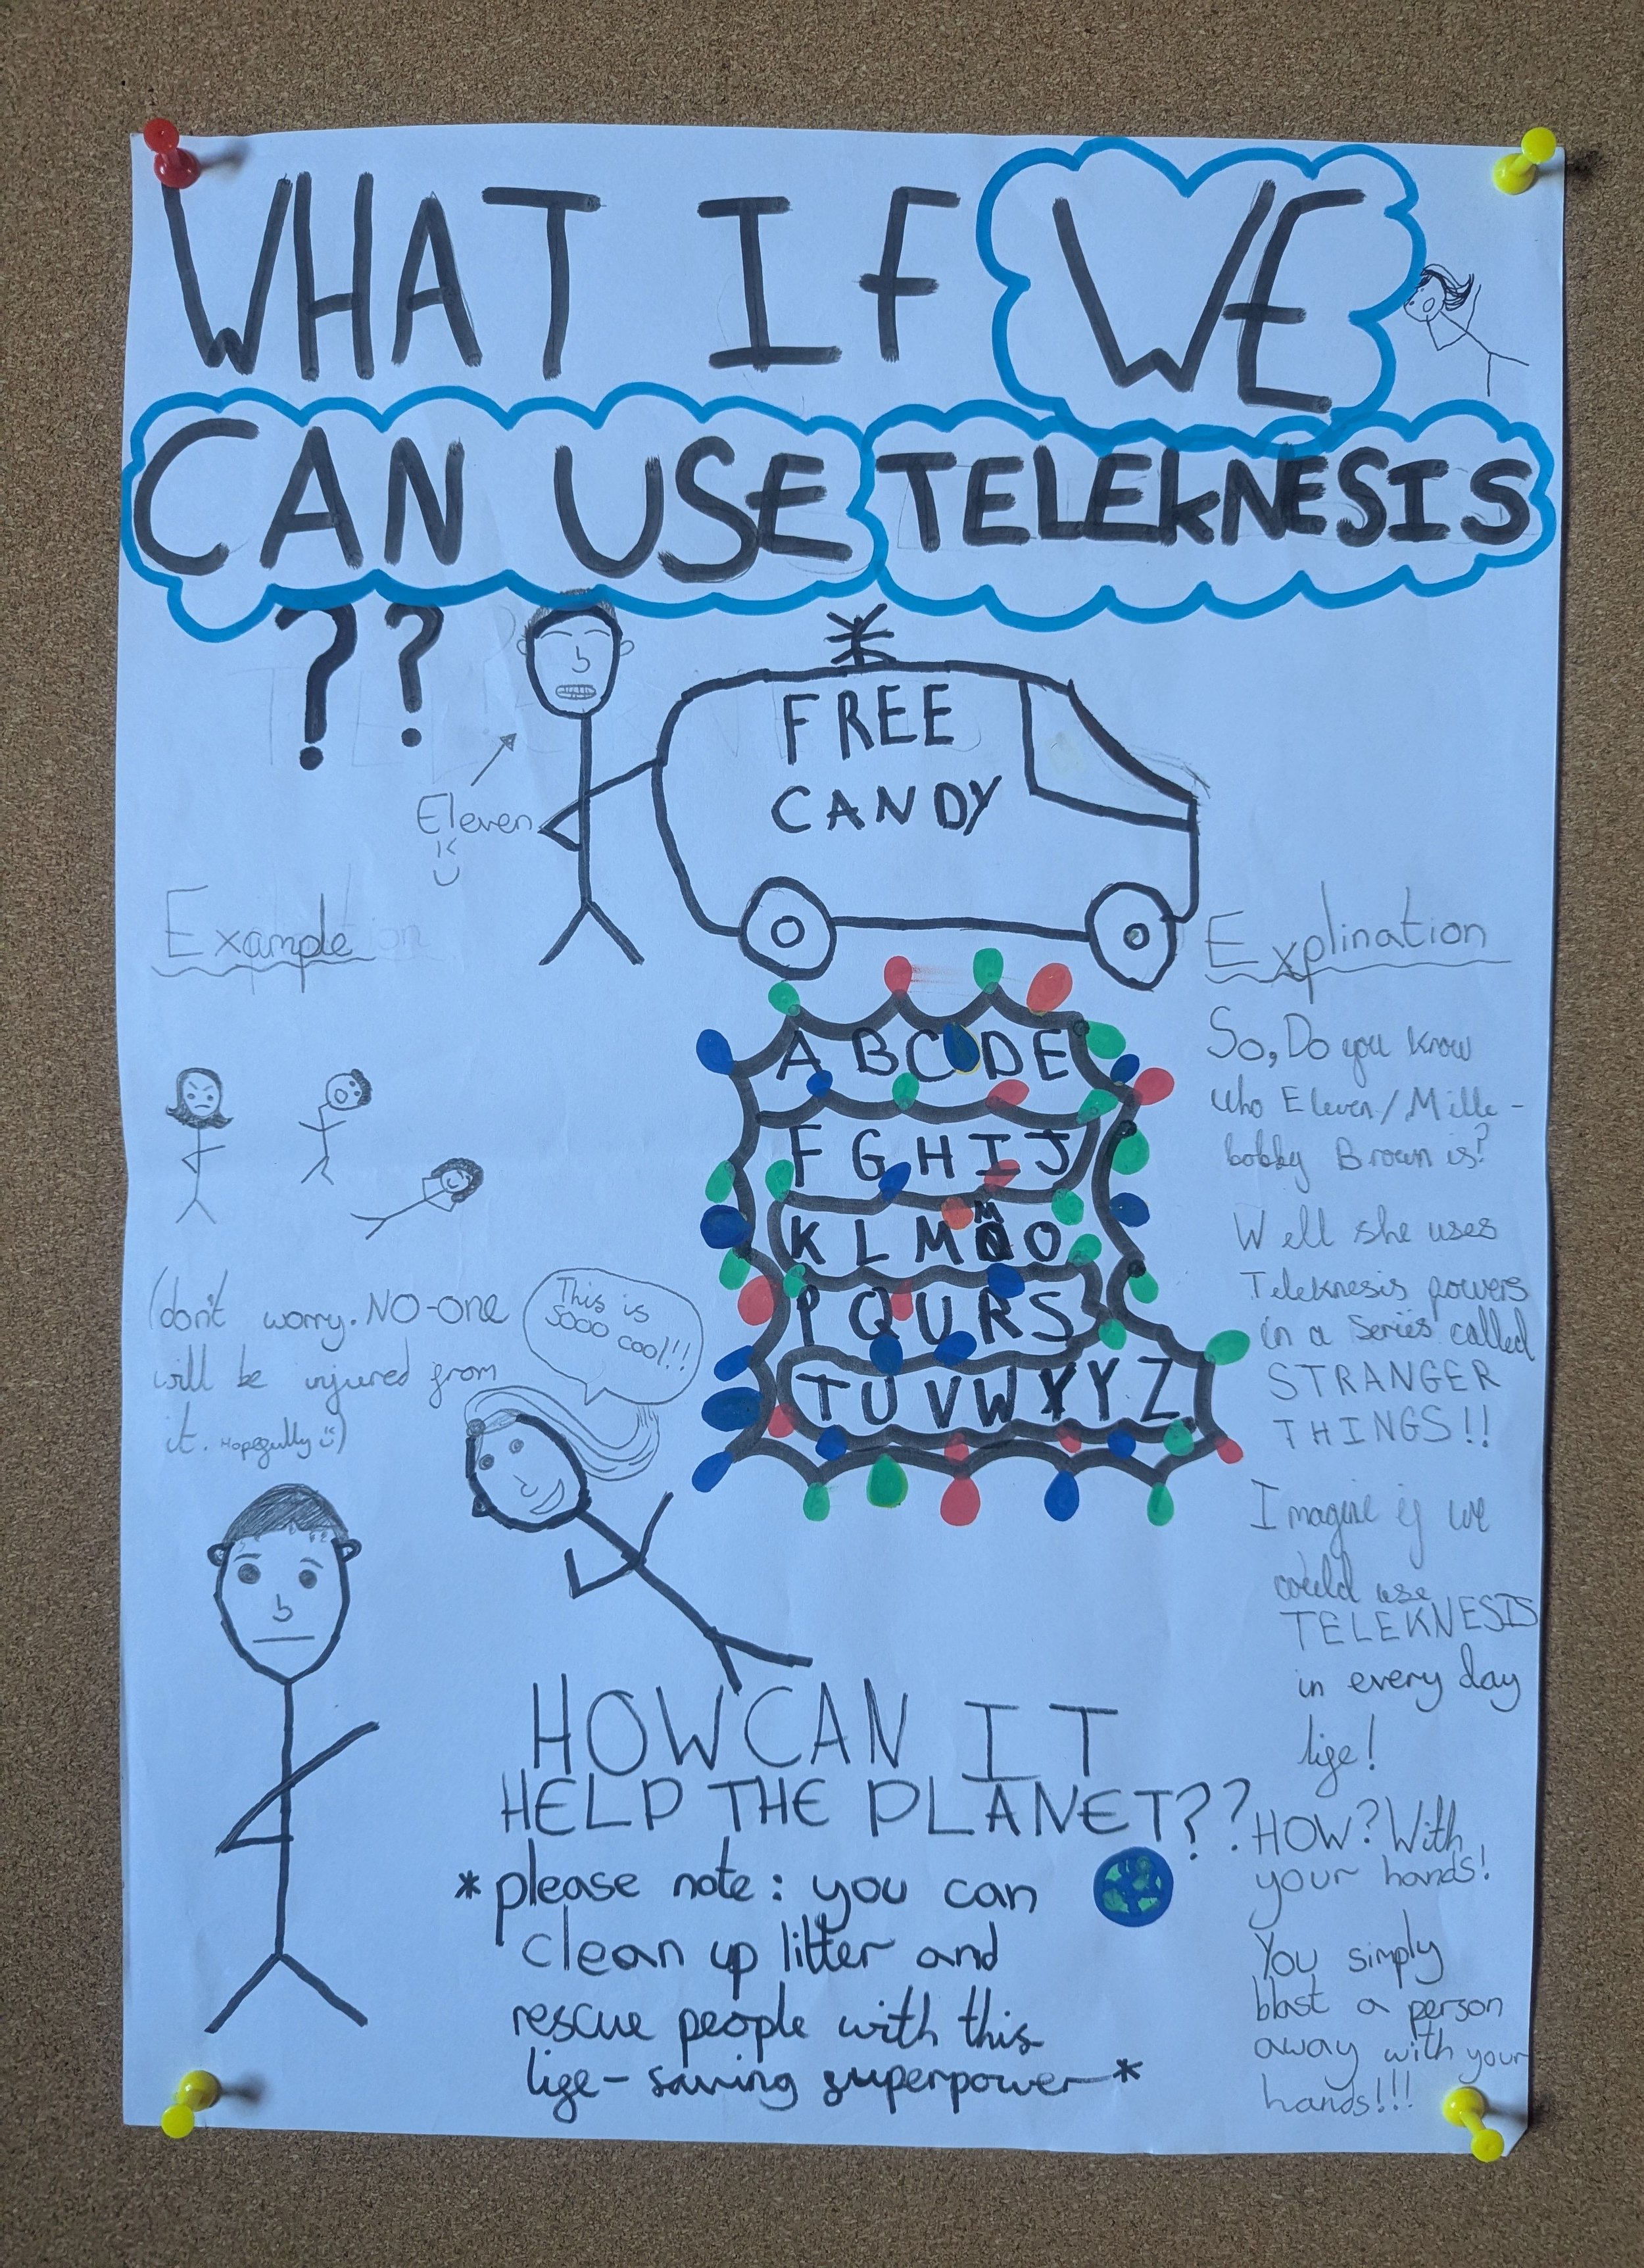 WHAT IF WE
CAN USE TELEKNESIS
??
FREE
CANDY
Eleven
Example
(don't worry. NO-one
will be injured from
it. Hopefully :))
This is
sooo cool!!
A B C D E
F G H I J
K L M N O
P Q U R S
T U V W X Y Z
Explination
So, Do you know
who Eleven/Mille-
bobby Brown is?
Well she uses
Teleknesis powers
in a series called
STRANGER
THINGS!!
Imagine if we
could use
TELEKNESIS
in every day
life!
HOW? With
your hands!
You simply
blast a person
away with your
hands!!!
HOW CAN IT
HELP THE PLANET??
*please note: you can
clean up litter and
rescue people with this
life-saving superpower*